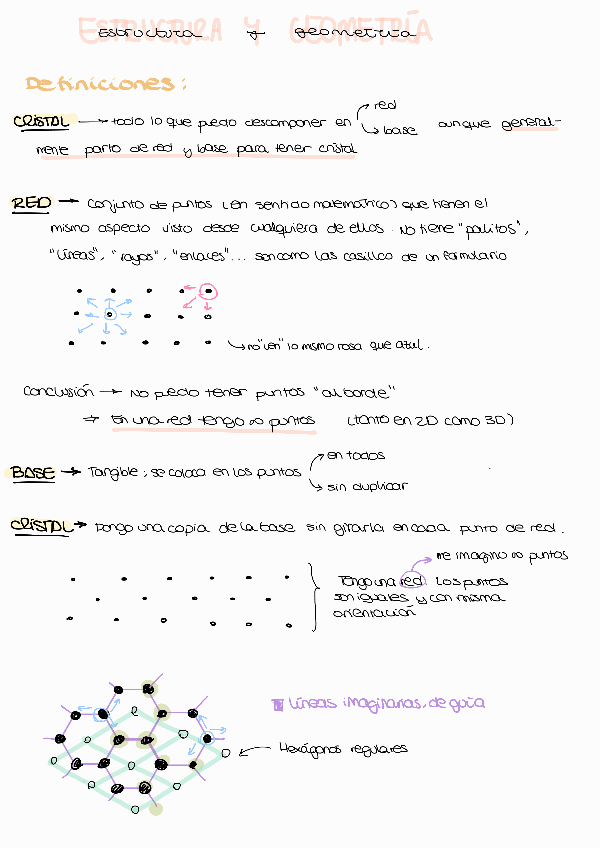 ESTRUCTURA Y GEOMETRÍA
Estructura y geometría
Definiciones:
CRISTAL → todo lo que puedo descomponer en
red
base
aunque general-
mente parto de red y base para tener cristal
RED → Conjunto de puntos (en sentido matemático) que tienen el
mismo aspecto visto desde cualquiera de ellos. No tiene "palitos",
"líneas", "rayos", "enlaces"... son como las casillas de un formulario
no "ven" lo mismo rosa que azul.
Conclusión → No puedo tener puntos "al borde"
⇒ En una red tengo ∞ puntos (tanto en 2D como 3D)
BASE → Tangible; se coloca en los puntos
en todos
sin duplicar
CRISTAL → Tengo una copia de la base sin girarla en cada punto de red.
me imagino ∞ puntos
Tengo una red. Los puntos
son iguales y con misma
orientación
Líneas imaginarias, de guía
Hexágonos regulares